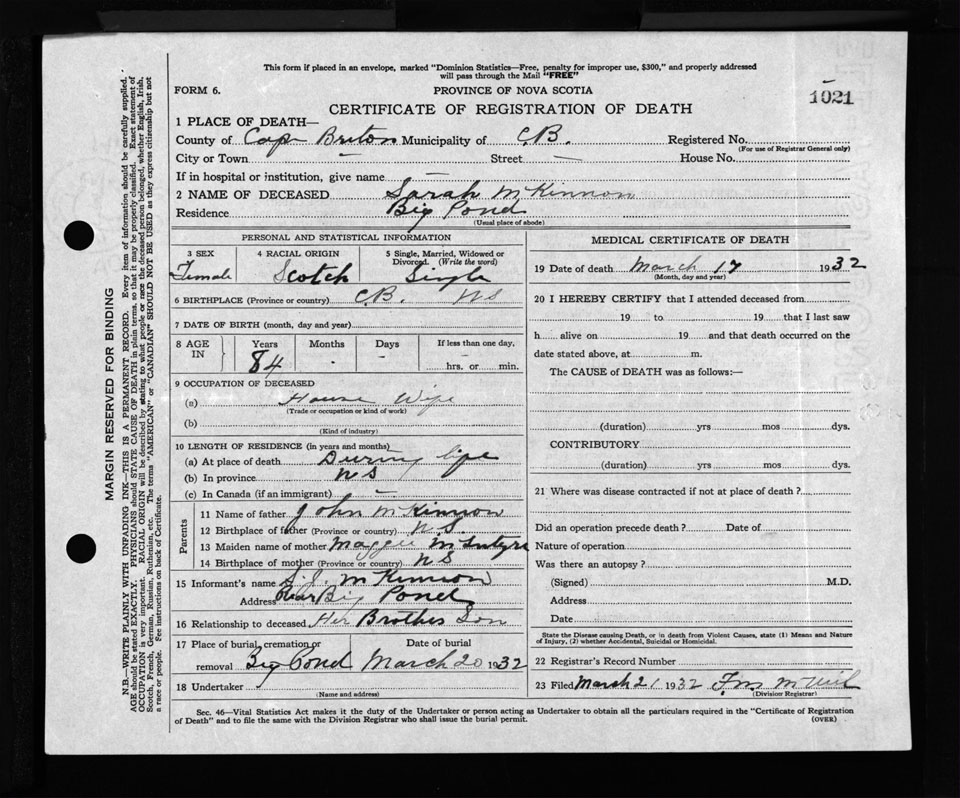 This form if placed in an envelope, marked "Dominion Statistics—Free, penalty for improper use, $300," and properly addressed
will pass through the Mail "FREE"
FORM 6.
PROVINCE OF NOVA SCOTIA
1021
CERTIFICATE OF REGISTRATION OF DEATH
1 PLACE OF DEATH—
County of Cape Briton Municipality of C.B. Registered No.
(For use of Registrar General only)
City or Town — Street — House No.
If in hospital or institution, give name
2 NAME OF DECEASED Sarah McKinnon
Residence Big Pond
(Usual place of abode)
PERSONAL AND STATISTICAL INFORMATION
3 SEX 4 RACIAL ORIGIN 5 Single, Married, Widowed or Divorced. (Write the word)
Female Scotch Single
6 BIRTHPLACE (Province or country) C.B. NS
7 DATE OF BIRTH (month, day and year)
8 AGE IN Years Months Days If less than one day,
84 hrs. or min.
9 OCCUPATION OF DECEASED
(a) House Wife
(Trade or occupation or kind of work)
(b)
(Kind of industry)
10 LENGTH OF RESIDENCE (in years and months)
(a) At place of death During life
(b) In province NS
(c) In Canada (if an immigrant) —
Parents
11 Name of father John McKinnon
12 Birthplace of father (Province or country) N.S.
13 Maiden name of mother Maggie McIntyre
14 Birthplace of mother (Province or country) NS
15 Informant's name S.J. McKinnon
Address Rear Big Pond
16 Relationship to deceased Her Brothes Son
17 Place of burial, cremation or Date of burial
removal Big Pond March 20 1932
18 Undertaker
(Name and address)
MEDICAL CERTIFICATE OF DEATH
19 Date of death March 17 1932
(Month, day and year)
20 I HEREBY CERTIFY that I attended deceased from
19 to 19 that I last saw
h alive on 19 and that death occurred on the
date stated above, at m.
The CAUSE of DEATH was as follows:—
(duration) yrs mos dys.
CONTRIBUTORY
(duration) yrs mos dys.
21 Where was disease contracted if not at place of death?
Did an operation precede death? Date of
Nature of operation
Was there an autopsy?
(Signed) M.D.
Address
Date
State the Disease causing Death, or in death from Violent Causes, state (1) Means and Nature
of Injury, (2) whether Accidental, Suicidal or Homicidal.
22 Registrar's Record Number
23 Filed March 21 1932 F.M. McNeil
(Division Registrar)
Sec. 46—Vital Statistics Act makes it the duty of the Undertaker or person acting as Undertaker to obtain all the particulars required in the "Certificate of Registration
of Death" and to file the same with the Division Registrar who shall issue the burial permit.
(OVER)
MARGIN RESERVED FOR BINDING
N.B.—WRITE PLAINLY WITH UNFADING INK—THIS IS A PERMANENT RECORD. Every item of information should be carefully supplied.
AGE should be stated EXACTLY. PHYSICIANS should STATE CAUSE OF DEATH in plain terms, so that it may be properly classified. Exact statement of
OCCUPATION is very important. RACIAL ORIGIN will be described by stating to what people or race the deceased person belonged, whether English, Irish,
Scotch, French, German, Russian, Ruthenian, etc. The terms "AMERICAN" or "CANADIAN" SHOULD NOT BE USED as they express citizenship but not
a race or people. See instructions on back of Certificate.